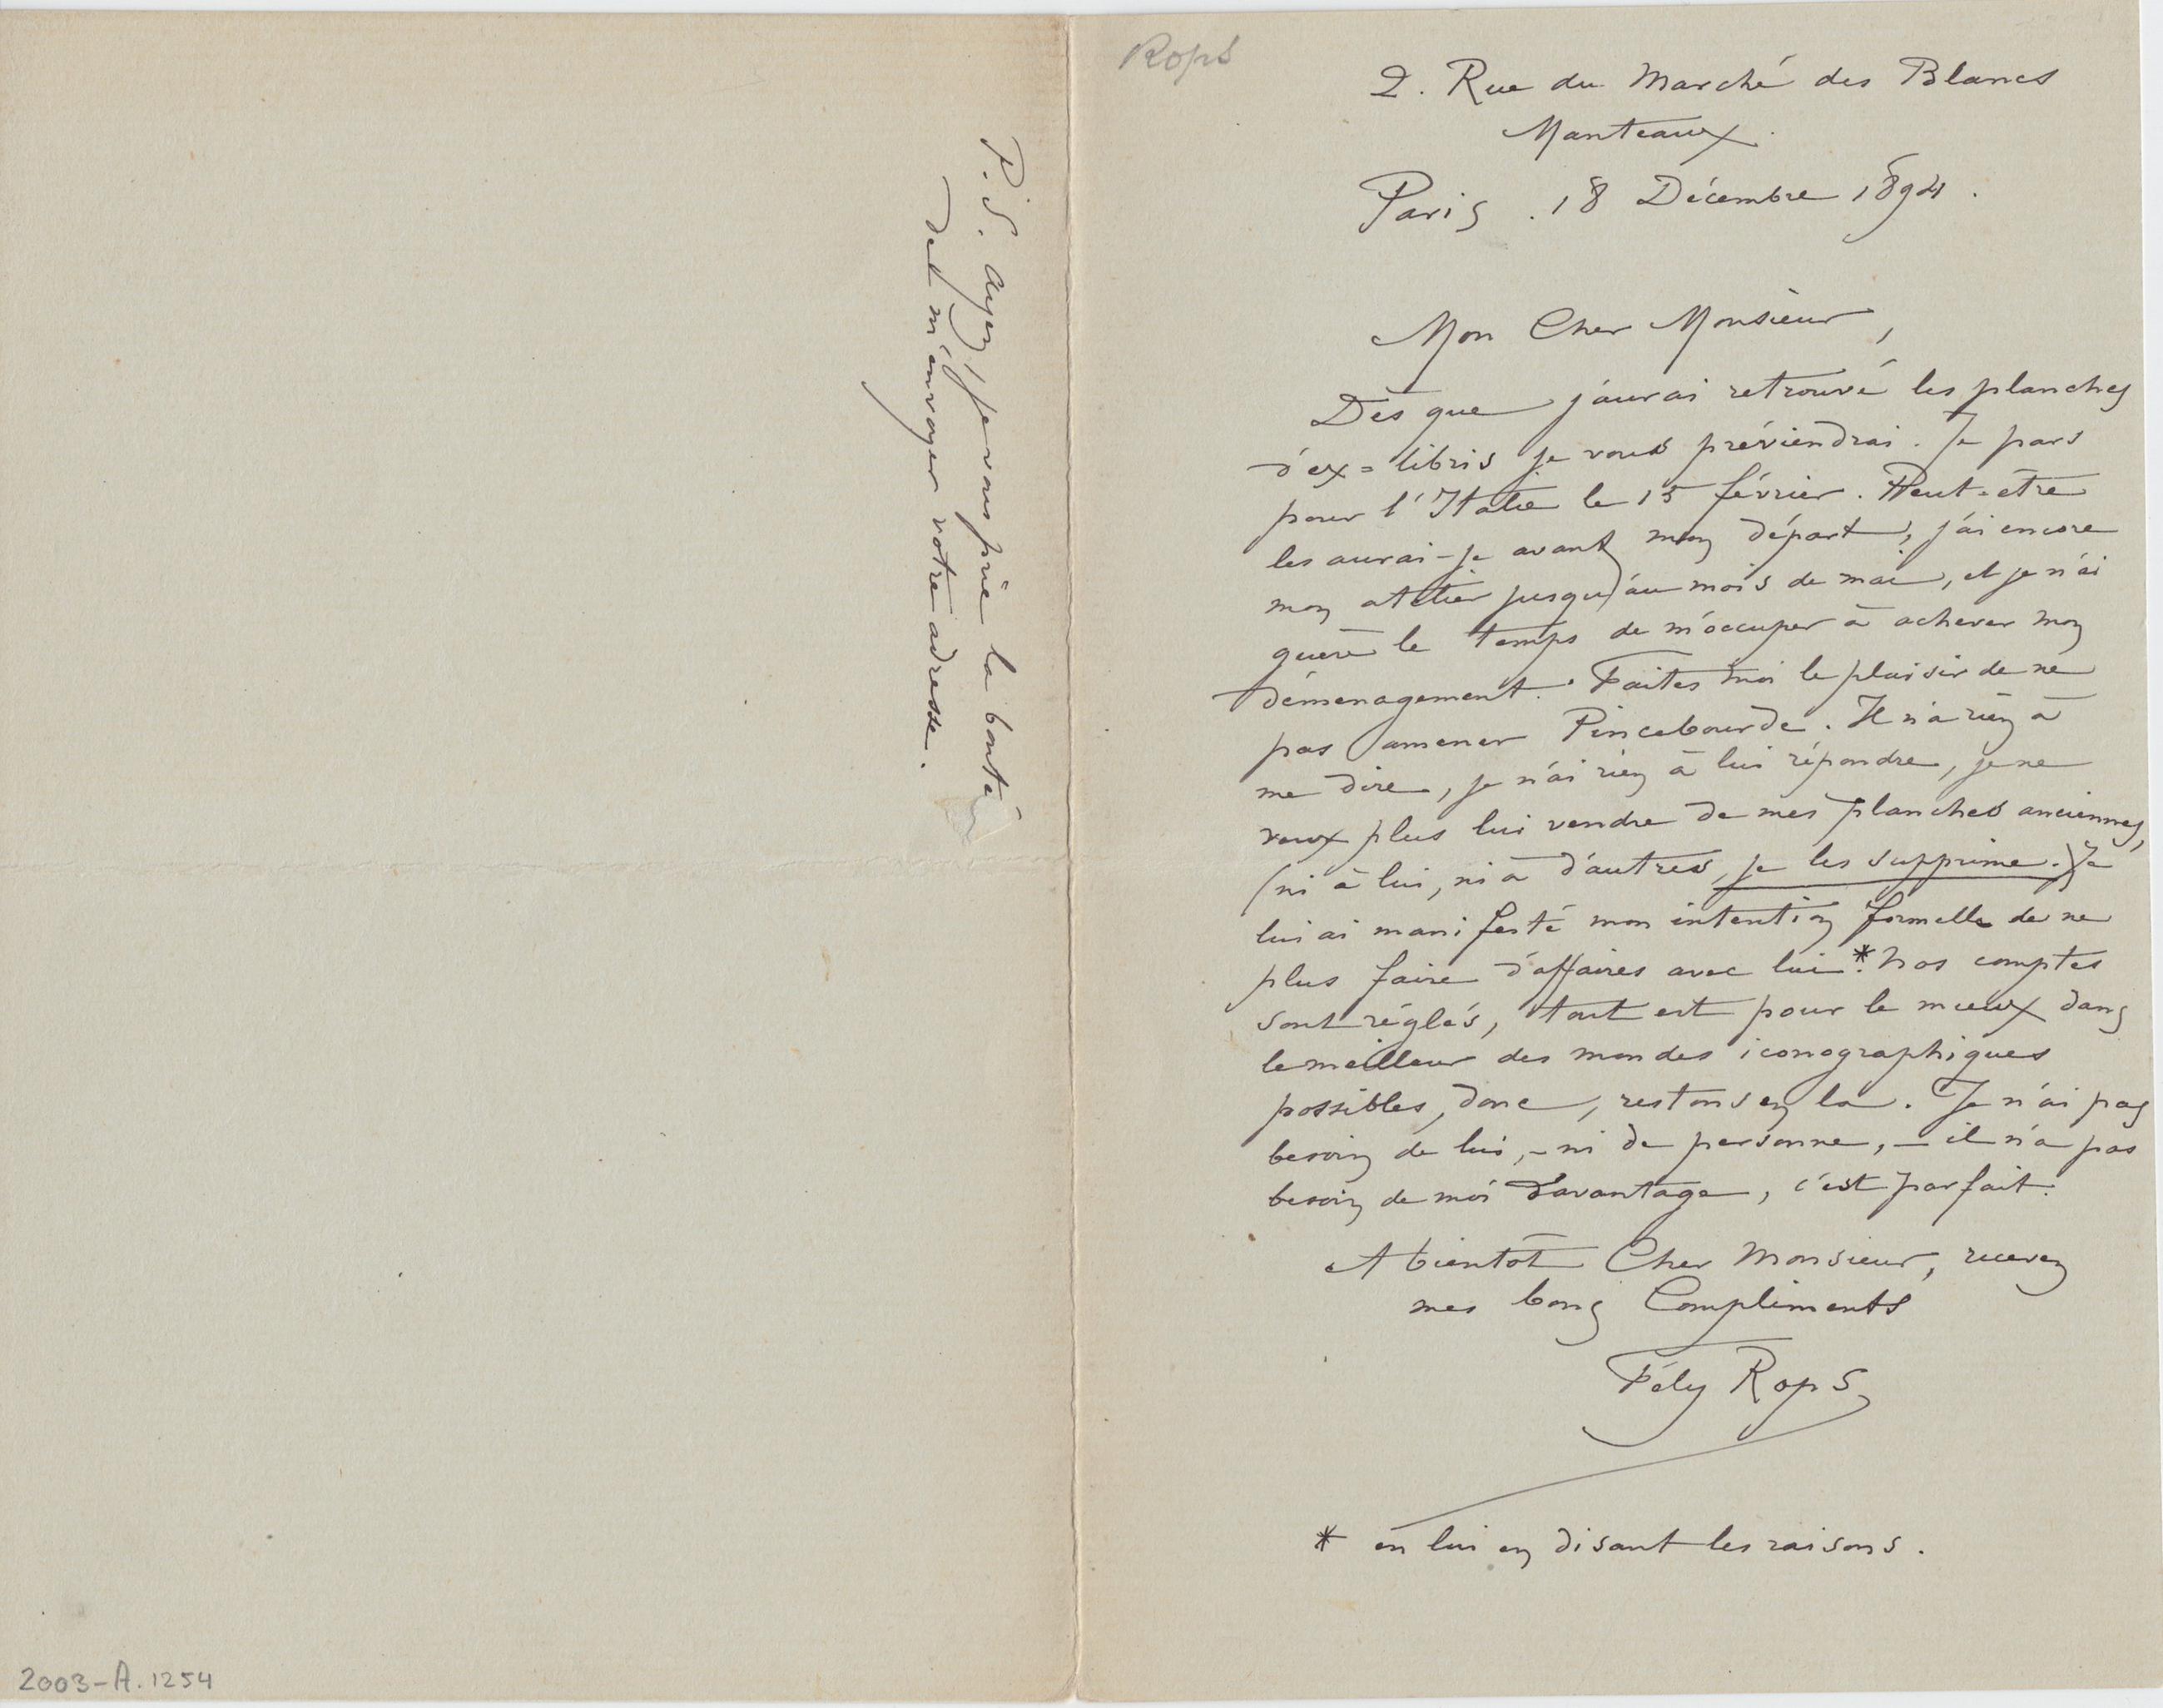 Rops
2. Rue du Marché des Blancs
Manteaux.
Paris . 18 Décembre 1894 .
Mon Cher Monsieur,
Dès que j'aurai retrouvé les planches
d'ex=libris je vous préviendrai. Je pars
pour l'Italie le 15 février. Peut-être
les aurai-je avant mon départ, j'ai encore
mon atelier jusqu'au mois de mai, et je n'ai
guère le temps de m'occuper à achever mon
déménagement. Faites moi le plaisir de ne
pas amener Pincebourde. Il n'a rien à
me dire, je n'ai rien à lui répondre, je ne
veux plus lui vendre de mes planches anciennes,
(ni à lui, ni à d'autres, je les supprime.) Je
lui ai manifesté mon intention formelle de ne
plus faire d'affaires avec lui*. Nos comptes
sont réglés, tout est pour le mieux dans
le meilleur des mondes iconographiques
possibles, donc, restons en là. Je n'ai pas
besoin de lui, - ni de personne, - il n'a pas
besoin de moi d'avantage, c'est parfait.
A bientôt Cher Monsieur, recevez
mes bons Compliments
Fély Rops
* en lui en disant les raisons.
P.S. ayez, je vous prie la bonté
de m'envoyer votre adresse.
2003-A.1254